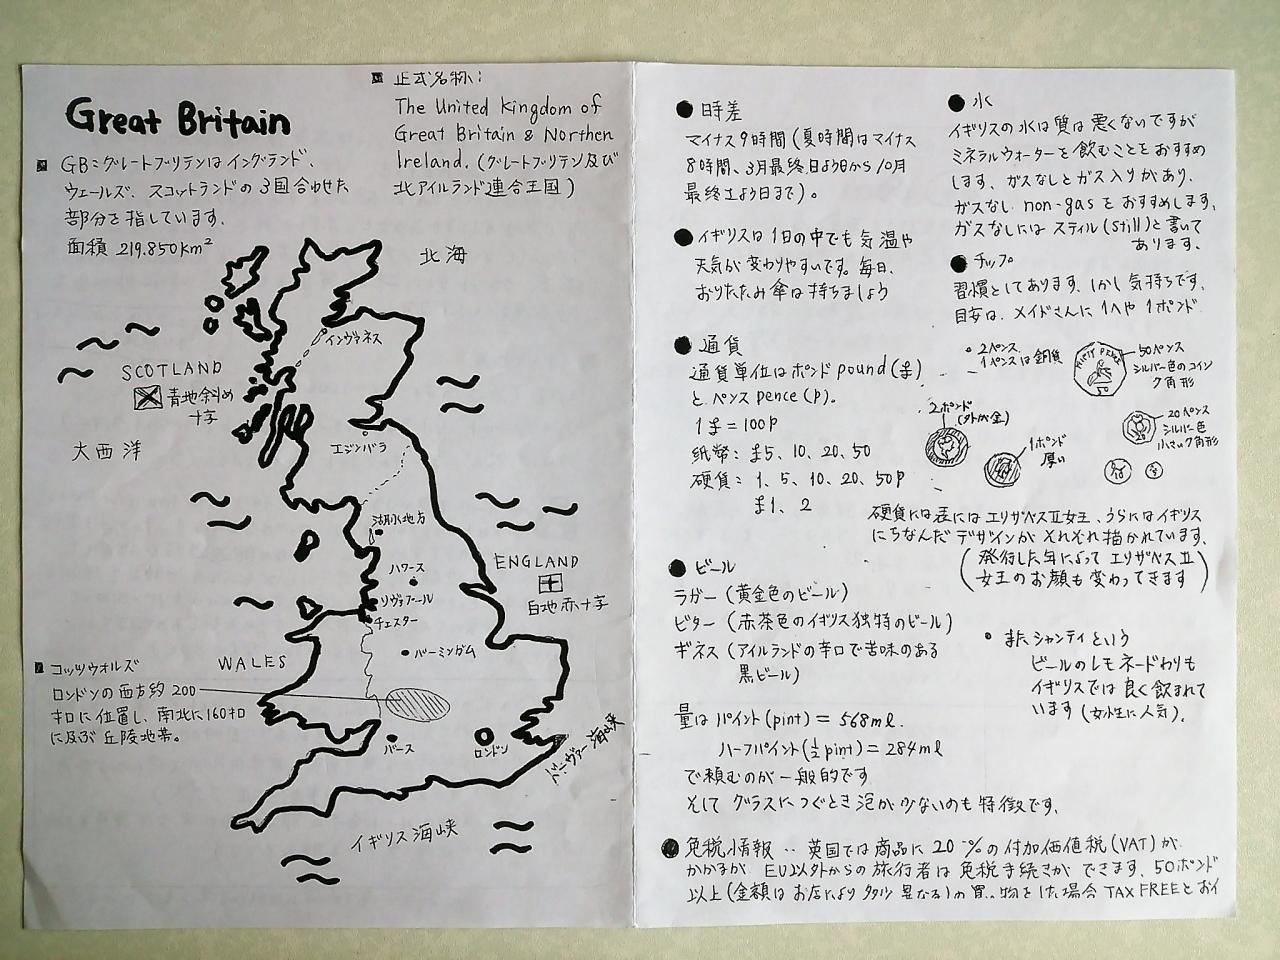 Great Britain
GB=グレートブリテンはイングランド、
ウェールズ、スコットランドの3国合わせた
部分を指しています。
面積 219.850km²
正式名称:
The United Kingdom of
Great Britain & Northen
Ireland. (グレートブリテン及び
北アイルランド連合王国)
北海
インヴァネス
SCOTLAND
青地斜め
十字
大西洋
エジンバラ
湖水地方
ハワース
ENGLAND
白地赤十字
リヴァプール
チェスター
バーミンガム
WALES
コッツウォルズ
ロンドンの西方約200
キロに位置し、南北に160キロ
に及ぶ丘陵地帯。
バース
ロンドン
ドーヴァー海峡
イギリス海峡
時差
マイナス9時間(夏時間はマイナス
8時間、3月最終日よう日から10月
最終土よう日まで)。
イギリスは1日の中でも気温や
天気が変わりやすいです。毎日、
おりたたみ傘は持ちましょう
通貨
通貨単位はポンドpound(£)
とペンスpence(p).
1£=100P
紙幣: £5、10、20、50
硬貨: 1、5、10、20、50p
£1、2
ビール
ラガー(黄金色のビール)
ビター(赤茶色のイギリス独特のビール)
ギネス(アイルランドの辛口で苦味のある
黒ビール)
量はパイント(pint)=568ml.
ハーフパイント(½pint)=284ml
で頼むのが一般的です
そして グラスにつぐとき泡が少ないのも特徴です。
水
イギリスの水は質は悪くないですが
ミネラルウォーターを飲むことをおすすめ
します、ガスなしとガス入りがあり、
ガスなし non-gasをおすすめします、
ガスなしには スティル(still)と書いて
あります、
チップ
習慣としてあります、しかし気持ちです、
目安は、メイドさんに1人や1ポンド
2ペンス
1ペンスは銅貨
50ペンス
シルバー色のコイン
ク角形
2ポンド
(外が金)
1ポンド
厚い
20ペンス
シルバー色
小さいク角形
硬貨には表にはエリザベスⅡ女王、うらにはイギリス
にちなんだデザインがそれぞれ描かれています、
(発行した年によってエリザベスⅡ
女王のお顔も変わってきます)
またシャンディという
ビールのレモネードわりも
イギリスでは良く飲まれて
います(女性に人気)。
免税情報‥ 英国では商品に20%の付加価値税(VAT)が
かかるが、EU以外からの旅行者は免税手続きができます、50ポンド
以上(金額はお店により多少異なる)の買い物をした場合TAX FREEとおイ